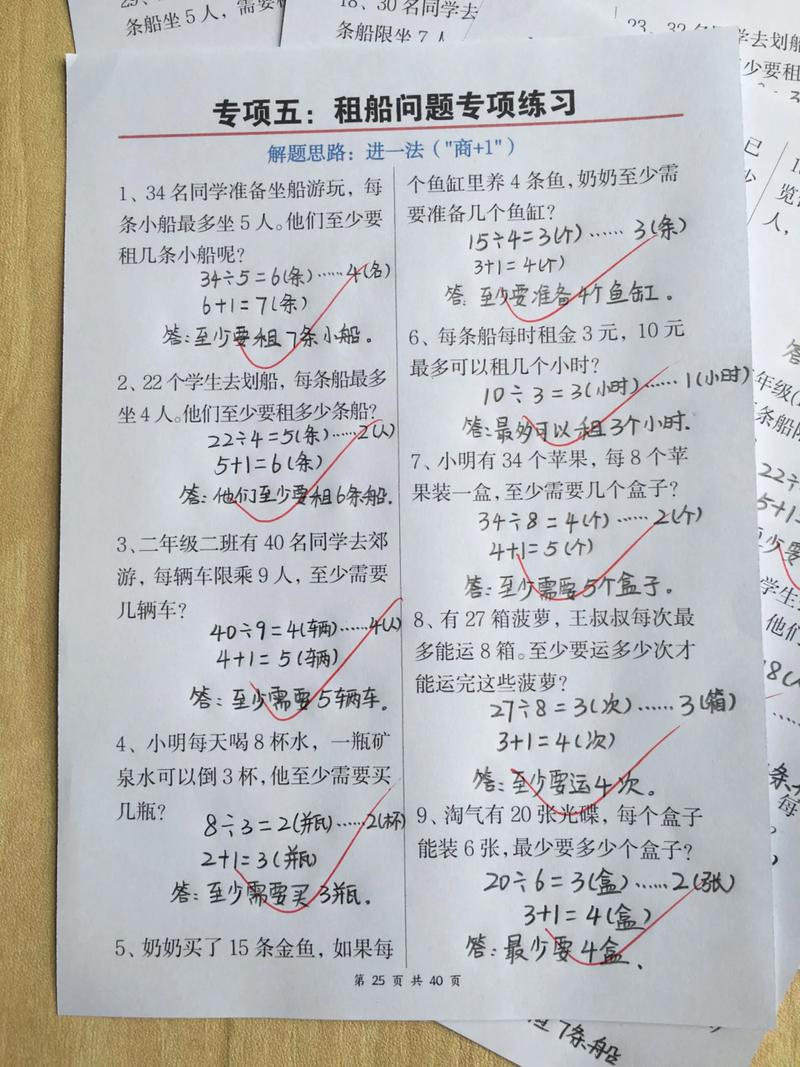 条船坐5人,需要租
18、30名同学去
条船限坐7人
23、32名同学去划船
专项五：租船问题专项练习
解题思路：进一法（"商+1"）
1、34名同学准备坐船游玩，每
条小船最多坐5人。他们至少要
租几条小船呢？
34÷5=6(条)……4(名)
6+1=7(条)
答:至少要租7条小船。
2、22个学生去划船，每条船最多
坐4人。他们至少要租多少条船？
22÷4=5(条)……2(人)
5+1=6(条)
答:他们至少要租6条船.
3、二年级二班有40名同学去郊
游，每辆车限乘9人，至少需要
几辆车？
40÷9=4(辆)……4(人)
4+1=5(辆)
答:至少需要5辆车.
4、小明每天喝8杯水，一瓶矿
泉水可以倒3杯,他至少需要买
几瓶？
8÷3=2(瓶)……2(杯)
2+1=3(瓶)
答:至少需要买3瓶.
5、奶奶买了15条金鱼，如果每
个鱼缸里养4条鱼,奶奶至少需
要准备几个鱼缸？
15÷4=3(个)……3(条)
3+1=4(个)
答:至少要准备4个鱼缸。
6、每条船每时租金3元，10元
最多可以租几个小时？
10÷3=3(小时)……1(小时)
答:最多可以租3个小时.
7、小明有34个苹果，每8个苹
果装一盒,至少需要几个盒子？
34÷8=4(个)……2(个)
4+1=5(个)
答:至少需要5个盒子.
8、有27箱菠萝，王叔叔每次最
多能运8箱。至少要运多少次才
能运完这些菠萝？
27÷8=3(次)……3(箱)
3+1=4(次)
答:至少要运4次。
9、淘气有20张光碟，每个盒子
能装6张,最少要多少个盒子？
20÷6=3(盒)……2(张)
3+1=4(盒)
答:最少要4盒.
第 25 页 共 40 页
7条船